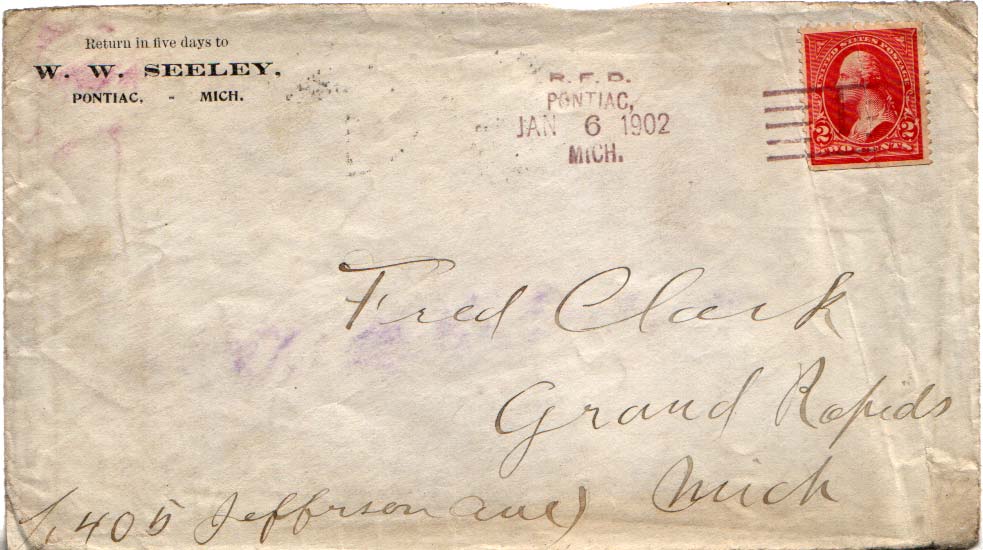 Return in five days to
W. W. SEELEY,
PONTIAC, - MICH.
R. F. D.
PONTIAC,
JAN 6 1902
MICH.
UNITED STATES POSTAGE
2 2
TWO CENTS
Fred Clark
Grand Rapids
Mich
405 Jefferson ave